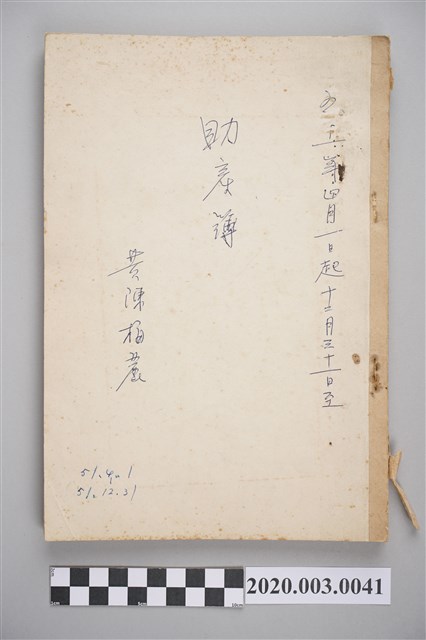 五十一年四月一日起十二月三十一日至
助産簿
黄陳梅
51.4.1
51.12.31
2020.003.0041